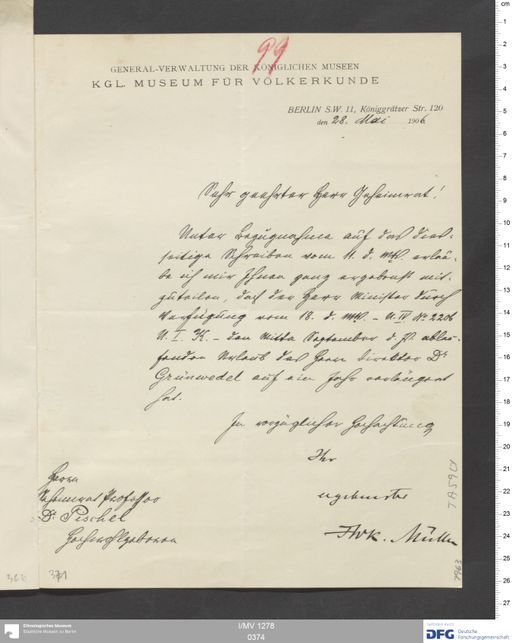 99
GENERAL-VERWALTUNG DER KÖNIGLICHEN MUSEEN
KGL. MUSEUM FÜR VÖLKERKUNDE
BERLIN S.W. 11, Königgrätzer Str. 120
den 28. Mai 1906
Sehr geehrter Herr Geheimrat!
Unter Bezugnahme auf das dies-
seitige Schreiben vom 11. d. Mts. erlau-
be ich mir Ihnen ganz ergebenst mit-
zuteilen, daß der Herr Minister durch
Verfügung vom 18. d. Mts. – U. IV No 2206
U. I. K. – den Mitte September d. J. ablau-
fenden Urlaub des Herrn Direktor Dr
Grünwedel auf ein Jahr verlängert
hat.
In vorzüglicher Hochachtung
Ihr
ergebenster
Müller
Herrn
Geheimrat Professor
Dr Pischel
Hochwohlgeboren
371
I/MV 1278
0374
Ethnologisches Museum
Staatliche Museen zu Berlin
DFG
Deutsche
Forschungsgemeinschaft
cm
1
2
3
4
5
6
7
8
9
10
11
12
13
14
15
16
17
18
19
20
21
22
23
24
25
26
27